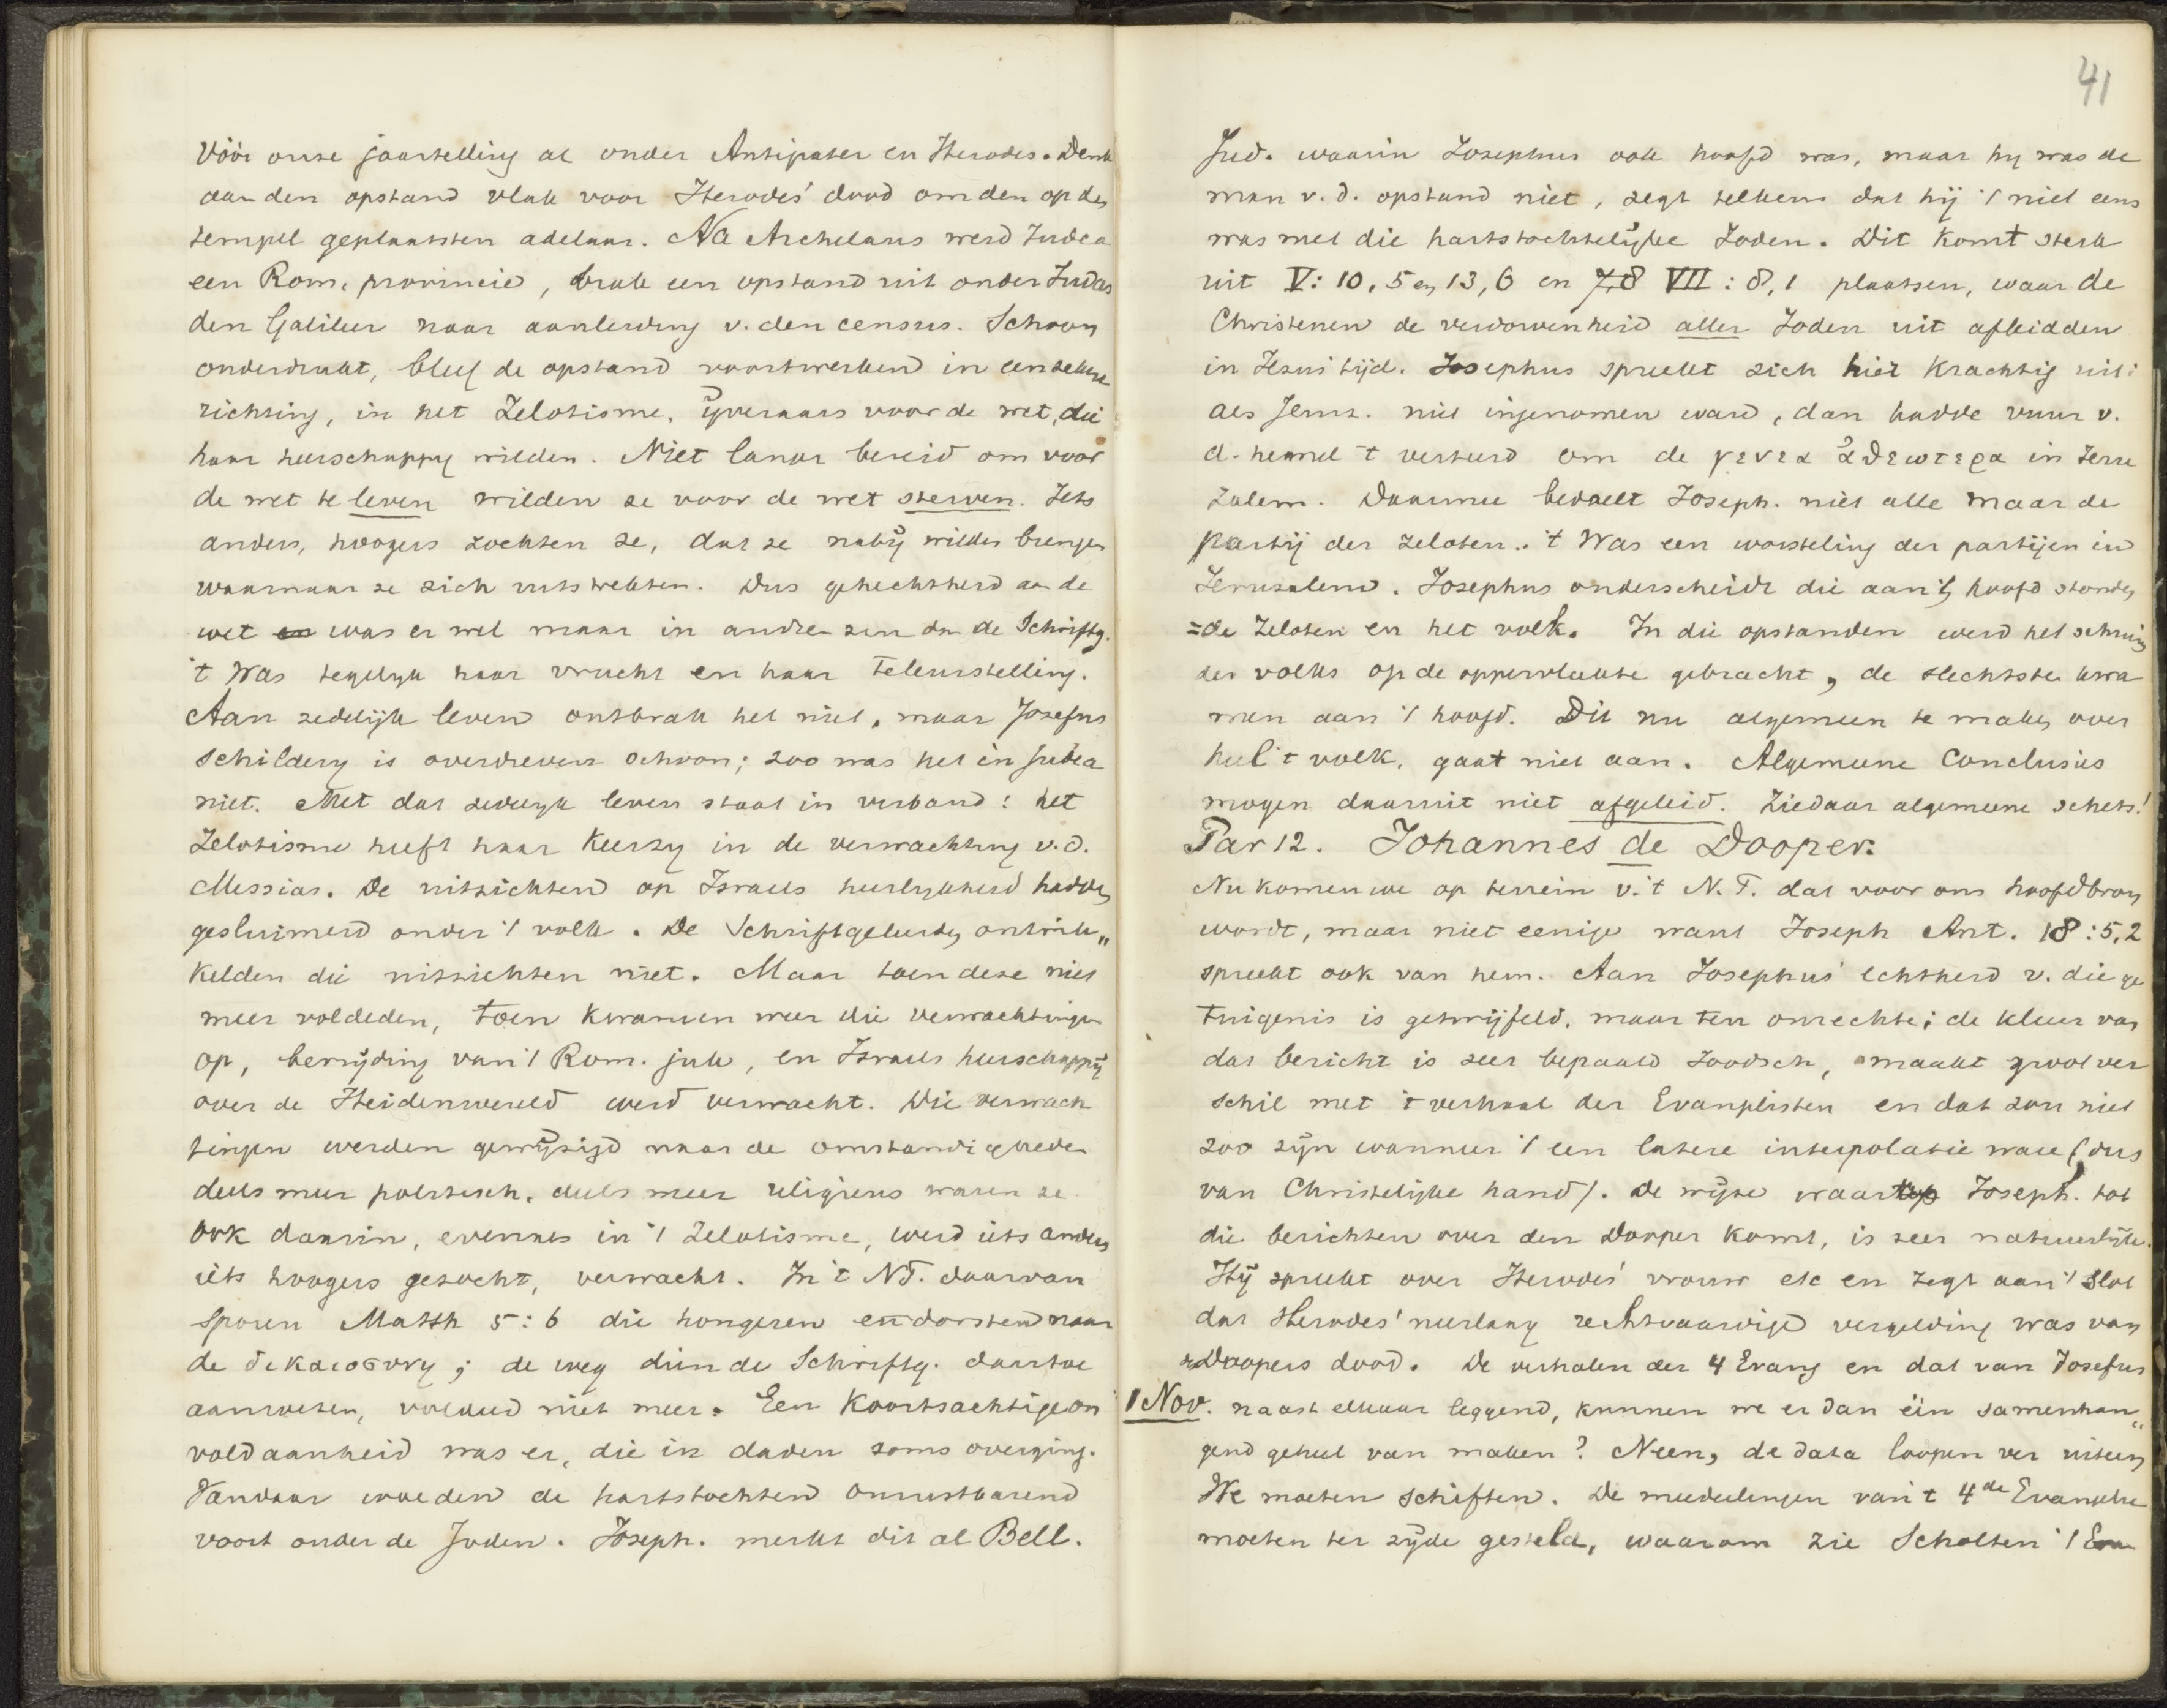 Vóór onze jaartelling al onder Antipater en Herodes. Denk
aan den opstand vlak voor Herodes' dood om den op den
tempel geplaatsten adelaar. Na Archelaus werd Judea
een Rom. provincie, brak een opstand uit onder Judas
den Galileer naar aanleiding v. den census. Schoon
onderdrukt, bleef de opstand voortwerken in een zekere
richting, in het Zelotisme, ijveraars voor de wet, die
haar heerschappij wilden. Niet langer bereid om voor
de wet te leven wilden ze voor de wet sterven. Iets
anders, hoogers zochten ze, dat ze nabij wilden brengen
waarnaar ze zich uitstrekten. Dus gehechtheid aan de
wet en was er wel maar in andren zin dan de Schriftg.
't Was tegelijk haar vrucht en haar teleurstelling.
Aan zedelijk leven ontbrak het niet, maar Josefus
schildering is overdreven schoon; zoo was het in Judea
niet. Met dat zedelijk leven staat in verband: het
Zelotisme heeft haar keerzij in de verwachting v.d.
Messias. De uitzichten op Israels heerlijkheid hadden
gesluimerd onder 't volk. De Schriftgeleerden ontwik„
kelden die uitzichten niet. Maar toen deze niet
meer voldeden, toen kwamen weer die verwachtingen
op, bevrijding van 't Rom. juk, en Israels heerschappij
over de Heidenwereld werd verwacht. Die verwach
tingen werden gewijzigd naar de omstandigheden
deels meer politisch, deels meer religieus waren ze
ook daarin, evenals in 't Zelotisme, werd iets anders
iets hoogers gezocht, verwacht. In 't NT. daarvan
sporen Matth 5:6 die hongeren en dorsten naar
de δικαιοσυνη; de weg dien de Schriftg. daartoe
aanwezen, voldeed niet meer. Een koortsachtige on
voldaanheid was er, die in daden soms overging.
Vandaar woeden de hartstochten onrustbarend
voort onder de Joden. Joseph. merkt dit al Bell.
41
Jud. waarin Josephus ook hoofd was, maar hij was de
man v. d. opstand niet, zegt telkens dat hij 't niet eens
was met die hartstochtelijke Joden. Dit komt sterk
uit V: 10, 5 en 13, 6 en 7,8 VII : 8, 1 plaatsen, waar de
Christenen de verdorvenheid aller Joden uit afleidden
in Jezus tijd. Josephus spreekt zich hier krachtig uit:
als Jeruz. niet ingenomen ward, dan hadde vuur v.
d. hemel 't verteerd om de γενεα ἀθεωτερα in Jeru
zalem. Daarmee bedoelt Joseph. niet alle maar de
partij der zeloten. 't Was een worsteling der partijen in
Jeruzalem. Josephus onderscheidt die aan 't hoofd stonden
=de Zeloten en het volk. In die opstanden werd het schuim
des volks op de oppervlakte gebracht, de slechtste kwa
men aan 't hoofd. Dit nu algemeen te maken over
heel 't volk, gaat niet aan. Algemeene Conclusies
mogen daaruit niet afgeleid. Ziedaar algemeene schets!
Par 12. Johannes de Dooper.
Nu komen we op terrein v. 't N.T. dat voor ons hoofdbron
wordt, maar niet eenige want Joseph Ant. 18:5,2
spreekt ook van hem. Aan Josephus' echtheid v. die ge
tuigenis is getwijfeld, maar ten onrechte; de kleur van
dat bericht is zeer bepaald Joodsch, maakt groot ver
schil met 't verhaal der Evangelisten en dat zou niet
zoo zijn wanneer 't een latere interpolatie ware (dus
van Christelijke hand). De wijze waarop Joseph. tot
die berichten over den Dooper komt, is zeer natuurlijk.
Hij spreekt over Herodes' vrouw etc en zegt aan 't slot
dat Herodes' neerlaag rechtvaardige vergelding was van
Doopers dood. De verhalen der 4 Evang en dat van Josefus
1 Nov. naast elkaar leggend, kunnen we er dan één samenhan„
gend geheel van maken? Neen, de data loopen ver uiteen
We moeten schiften. De mededeelingen van 't 4de Evangelie
moeten ter zijde gesteld, waarom zie Scholten 't Evan